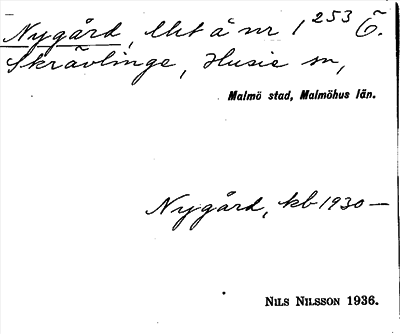 Nygård, lht å nr 1²⁵³ Ö.
Skrävlinge, Husie sn,
Malmö stad, Malmöhus län.
Nygård, kb 1930—
NILS NILSSON 1936.